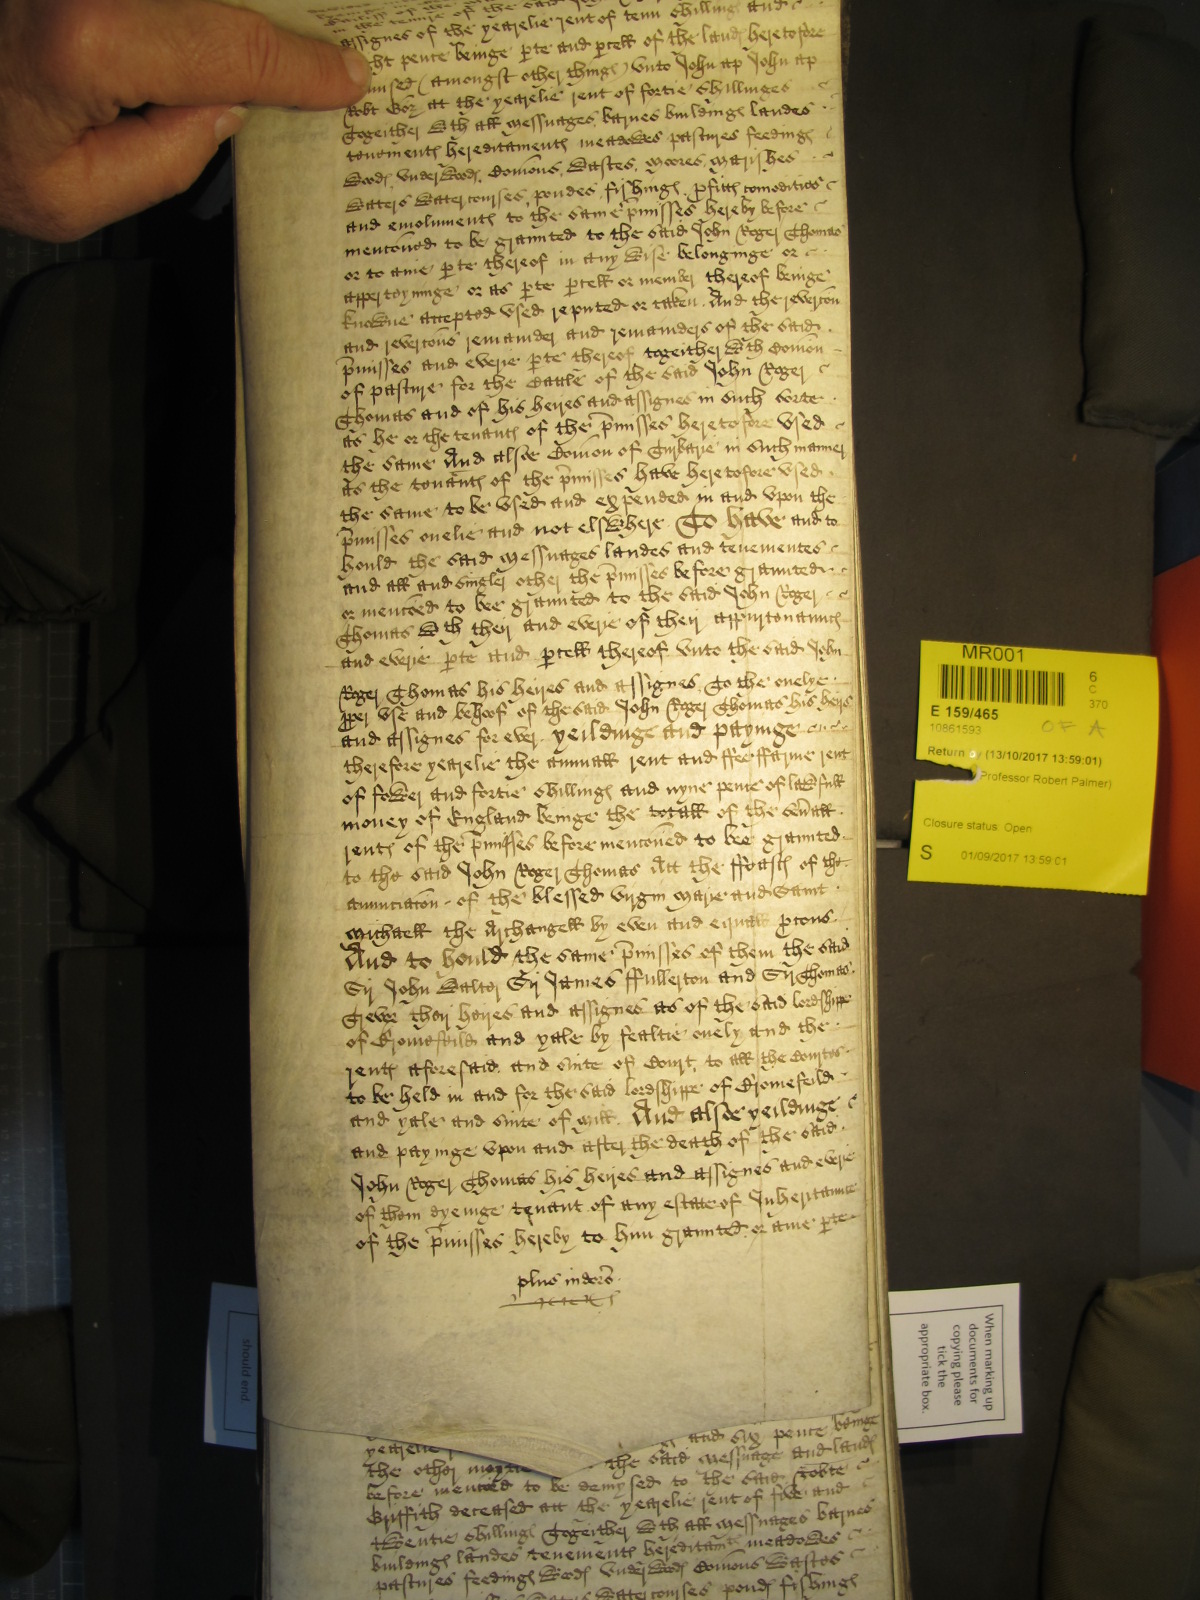 in the tenure of the said John
assignes of the yearelie rent of tenn shillings and
pence beinge pte and pcell of the landes heretofore
(amongst other things) unto John ap John ap
Robt Goz at the yearelie rent of fortie shillinges
Togeither wth all messuages barnes buildings landes
tenements hereditaments meadowes pastures feedings
woods, underwoods, Comons, Wastes, moores, marishes
Waters Watercourses, pondes, fishings, pfitts comodities
and emoluments to the same pmisses hereby before
mencioned to be graunted to the said John Roger Thomas
or to anie pte thereof in any wise belonginge or
apperteyninge or as pte pcell or member thereof beinge
knowne accepted used reputed or taken. And the revercon
and revercons remainder and remainders of the said
pmisses and everie pte thereof togeither wth Comon
of pasture for the Cattle of the said John Roger
Thomas and of his heires and assignes in such sorte
as he or the tenants of the pmisses heretofore used
the same And alsoe Comon of Turbarie in such manner
As the tenants of the pmisses have heretofore used
the same to be used and expended in and upon the
pmisses onelie and not elswhere. To have and to
hould the said messuages landes and tenementes
and all and singler other the pmisses before graunted
or mencoed to bee graunted to the said John Roger
Thomas wth their and everie of their appurtenaunces
and everie pte and pcell thereof unto the said John
Roger Thomas his heires and assignes. To the onelye
pper use and behoof of the said John Roger Thomas his heirs
and assignes for ever. yeildinge and payinge
therefore yearelie the annuall rent and ffee ffarme rent
of fower and fortie shillings and nyne pence of lawfull
money of England beinge the totall of the sevall
rents of the pmisses before menconed to bee graunted
to the said John Roger Thomas Att the ffeasts of the
annunciaton of the blessed virgin Marie and Saint
Michaell the Archangell by even and equall pcons
And to hould the same pmisses of them the said
Sir John Walter Sir James ffullerton and Sir Thomas
Trevor their heires and assignes as of the said lordshipp
of Bromefeild and yale by fealtie onely and the
rents aforesaid, and suite of Court, to all the Courtes
to be held in and for the said lordshipp of Bromefeild
and yale and suite of mill. And alsoe yeildinge
and payinge upon and after the death of the said
John Roger Thomas his heires and assignes and everie
of them dyeinge tenant of any estate of Inheritance
of the pmisses hereby to him graunted or anie pte
plus indors
yearelie and six pence beinge
the other moytie the said messuage and lands
before mencoed to be demysed to the said Robte
Griffith deceased att the yearelie rent of five and
twentie shillings Togeither wth all messuages barnes
buildings landes tenements hereditamts meadowes
pastures feedings Woods underwoods Comons Wastes
Watercourses ponds fishings
MR001
6
C
370
E 159/465
10861593
OF A
Return by (13/10/2017 13:59:01)
Professor Robert Palmer)
Closure status: Open
S
01/09/2017 13:59:01
should end.
When marking up
documents for
copying please
tick the
appropriate box.